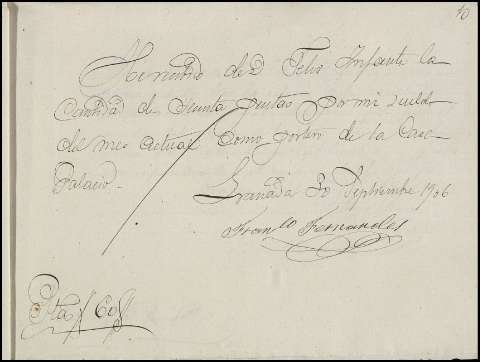 He recibido de D Felix Infante la
Cantidad de Sesenta pesetas por mi sueldo
del mes actual como portero de la Casa
Palacio.
Granada 30 Septiembre 1906
Fran.co Fernandes
Ptas 60